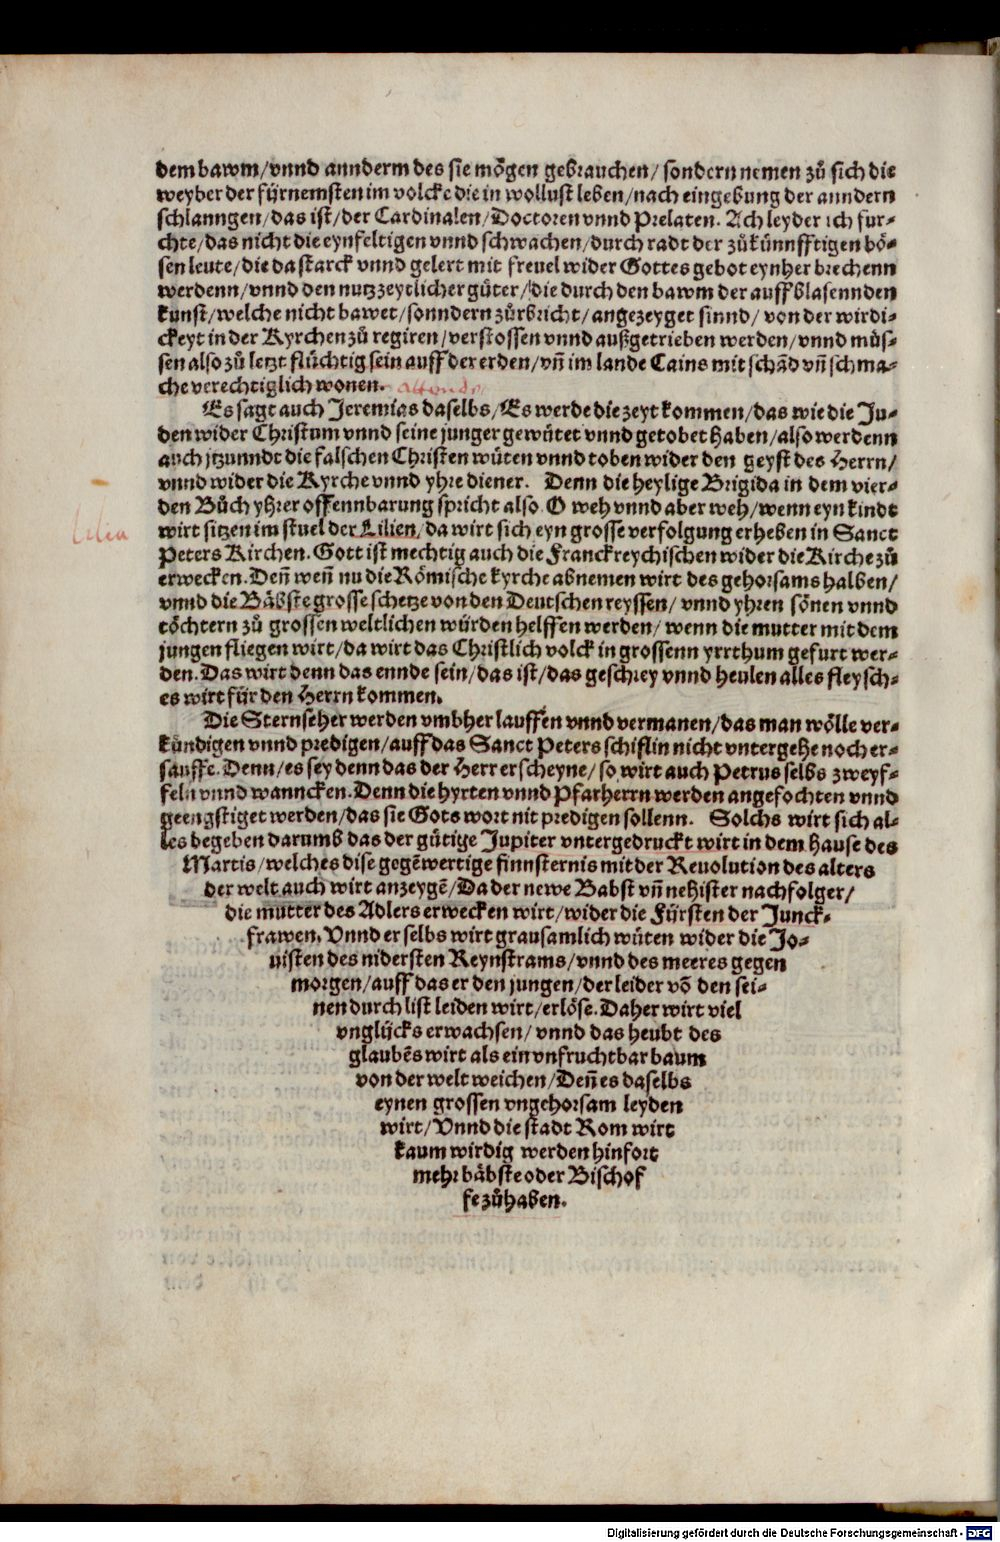 dem bawm/vnnd annderm des sie mögen gebrauchen/sondern nemen zů sich die
weyber der fürnemsten im volcke die in wollust leben/nach eingebung der anndern
schlanngen/das ist/der Cardinalen/Doctoren vnnd Prelaten. Ach leyder ich fur⸗
chte/das nicht die eynfeltigen vnnd schwachen/durch radt der zůkünnfftigen bö⸗
sen leute/die da starck vnnd gelert mit freuel wider Gottes gebot eynher brechenn
werdenn/vnnd den nutz zeytlicher güter/die durch den bawm der auffblasennden
kunst/welche nicht bawet/sonndern zůrbricht/angezeyget sinnd/von der wirdi⸗
ckeyt in der Kyrchen zů regiren/verstossen vnnd außgetrieben werden/vnnd müs⸗
sen also zů letzt flüchtig sein auff der erden/vñ im lande Cains mit schād vñ schma⸗
che verechtiglich wonen. attende
Es sagt auch Jeremias daselbs/Es werde die zeyt kommen/das wie die Ju⸗
den wider Christum vnnd seine junger gewütet vnnd getobet haben/also werdenn
auch jtzunndt die falschen Christen wüten vnnd toben wider den geyst des Herrn/
vnnd wider die Kyrche vnnd yhre diener. Denn die heylige Brigida in dem vier⸗
den Bůch yhrer offennbarung spricht also. O weh vnnd aber weh/wenn eyn kindt
lilia
wirt sitzen im stuel der Lilien/da wirt sich eyn grosse verfolgung erheben in Sanct
Peters Kirchen. Gott ist mechtig auch die Franckreychischen wider die Kirche zů
erwecken. Deñ weñ nu die Römische kyrche abnemen wirt des gehorsams halben/
vnnd die Bäbste grosse schetze von den Deutschen reyssen/vnnd yhren sönen vnnd
töchtern zů grossen weltlichen würden helffen werden/wenn die mutter mit dem
jungen fliegen wirt/da wirt das Christlich volck in grossenn yrrthum gefurt wer⸗
den. Das wirt denn das ennde sein/das ist/das geschrey vnnd heulen alles fleysch⸗
es wirt für den Herrn kommen.
Die Sternseher werden vmbher lauffen vnnd vermanen/das man wölle ver⸗
kündigen vnnd predigen/auff das Sanct Peters schiflin nicht vntergehe noch er⸗
sauffe. Denn/es sey denn das der Herr erscheyne/so wirt auch Petrus selbs zweyf⸗
feln vnnd wanncken. Denn die hyrten vnnd Pfarherrn werden angefochten vnnd
geengstiget werden/das sie Gots wort nit predigen sollenn. Solchs wirt sich al⸗
les begeben darumb das der gütige Jupiter vntergedruckt wirt in dem hause des
Martis/welches dise gegēwertige finnsternis mit der Reuolution des alters
der welt auch wirt anzeygē/Da der newe Babst vñ nehister nachfolger/
die mutter des Adlers erwecken wirt/wider die Fürsten der Junck⸗
frawen. Vnnd er selbs wirt grausamlich wüten wider die Jo⸗
uisten des nidersten Reynstrams/vnnd des meeres gegen
morgen/auff das er den jungen/der leider vō den sei⸗
nen durch list leiden wirt/erlöse. Daher wirt viel
vnglücks erwachsen/vnnd das heubt des
glaubēs wirt als ein vnfruchtbar baum
von der welt weichen/Deñ es daselbs
eynen grossen vngehorsam leyden
wirt/Vnnd die stadt Rom wirt
kaum wirdig werden hinfort
mehr bäbste oder Bischof
fe zůhaben.
Digitalisierung gefördert durch die Deutsche Forschungsgemeinschaft - DFG